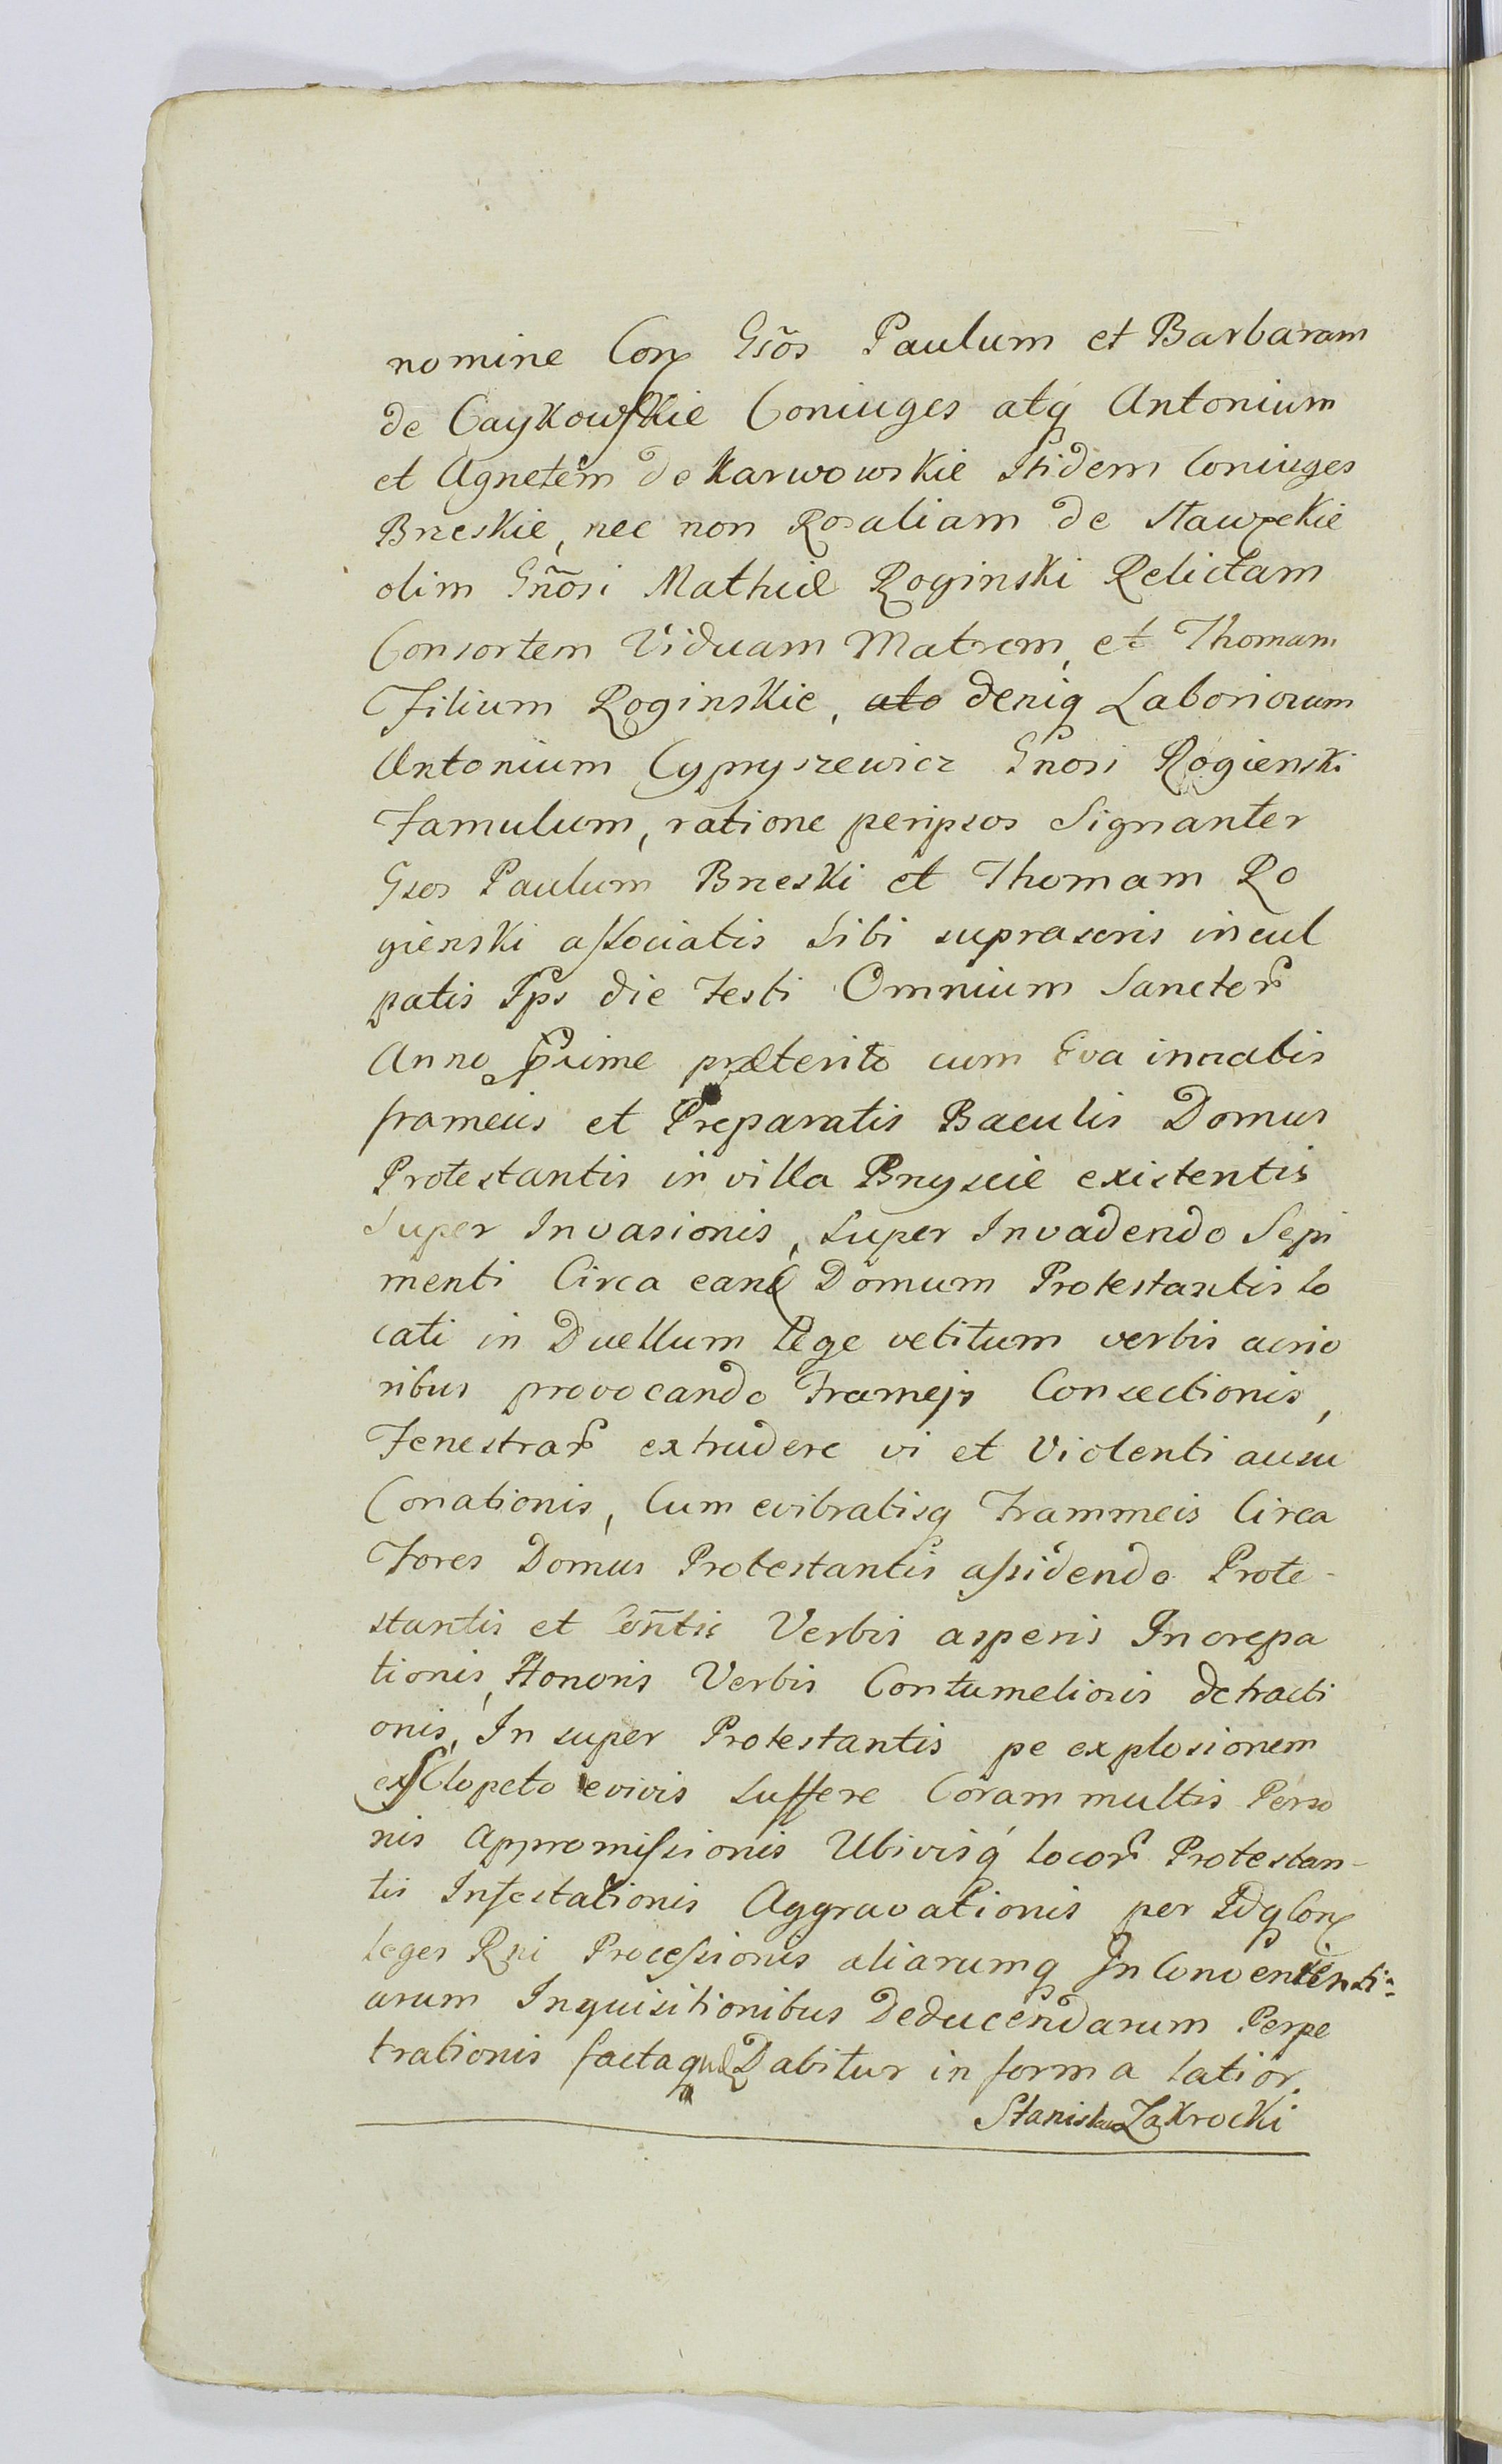 nomine Con Gsõs Paulum et Barbaram
de Caykowskie Coniuges atq́ Antonium
et Agnetem de Karwowskie Itidem Coniuges
Brzeskie, nec non Rosaliam de Staweckie
olim Gñosi Mathiæ Roginski Relictam
Consortem Viduam Matrem, et Thomam
Filium Roginskie, denią Laboriosum
Antonium Cypryszewicz Gnosi Rogienski
Famulum, ratione peripsos Signanter
Gsos Paulum Brzeski et Thomam Ro
gienski associatis Sibi suprascris incul
patis Ips die Festi Omnium Sanctor
Anno prime præterito cum Eva
frameis et Preparatis Baculis Domus
Protestantis in villa existentis
Super Invasionis, super Invadendo Sepi
menti Circa eand Domum Protestantis lo
cati in Duellum lege vetitum verbis acrio
ribus provocando Framejs Consectionis,
Fenestrar extrudere vi et Violenti ausu
Conationis, Cum evibratisq Frammeis Circa
Fores Domus Protestantis assidendo Prote-
stantis et Coñtis Verbis asperis Increpa
tionis, Honoris Verbis Contumeliosis detracti
onis, In super Protestantis pe explosionem
ex Sclopeto evivis Sufferre Coram multis Perso
nis Appromissionis Ubivisq́ locor Protestan-
tis Infestationis Aggravationis per
leges Rni Processionis aliarumq
arum Inquisitionibus Deducendarum Perpe
trationis factaque Dabitur in forma latior.
Stanislaus Zakrocki